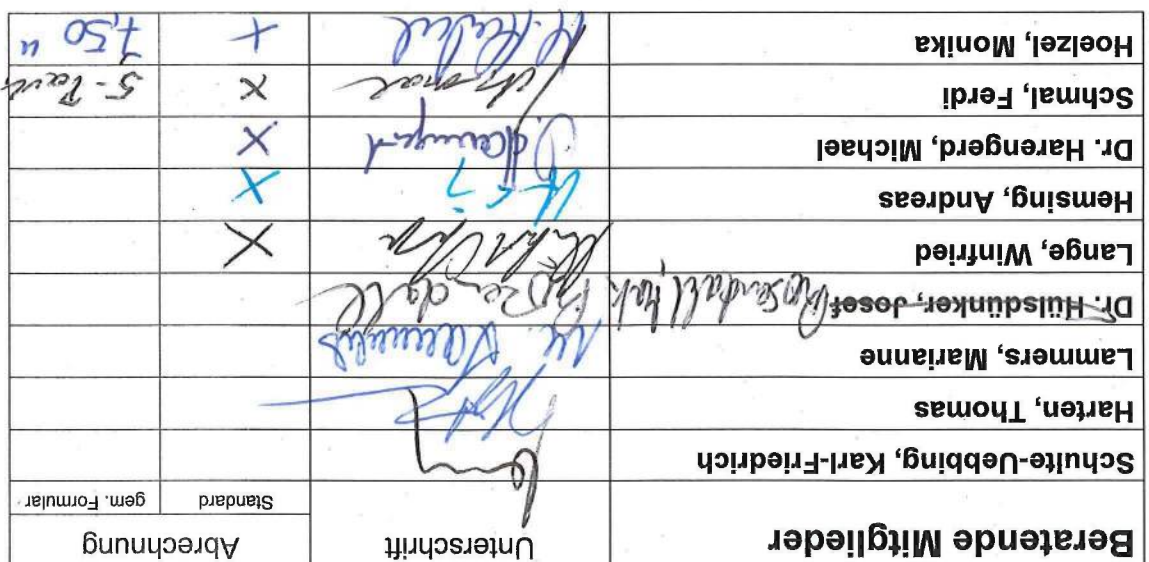 Beratende Mitglieder Unterschrift Abrechnung
Standard gem. Formular
Schulte-Uebbing, Karl-Friedrich
Harten, Thomas —
Lammers, Marianne M. Lammers
Dr. Hülsdünker, Josef Rosendahl
Lange, Winfried X
Hemsing, Andreas X
Dr. Harengerd, Michael Harengerd X
Schmal, Ferdi Schmal X
Hoelzel, Monika X 7,50